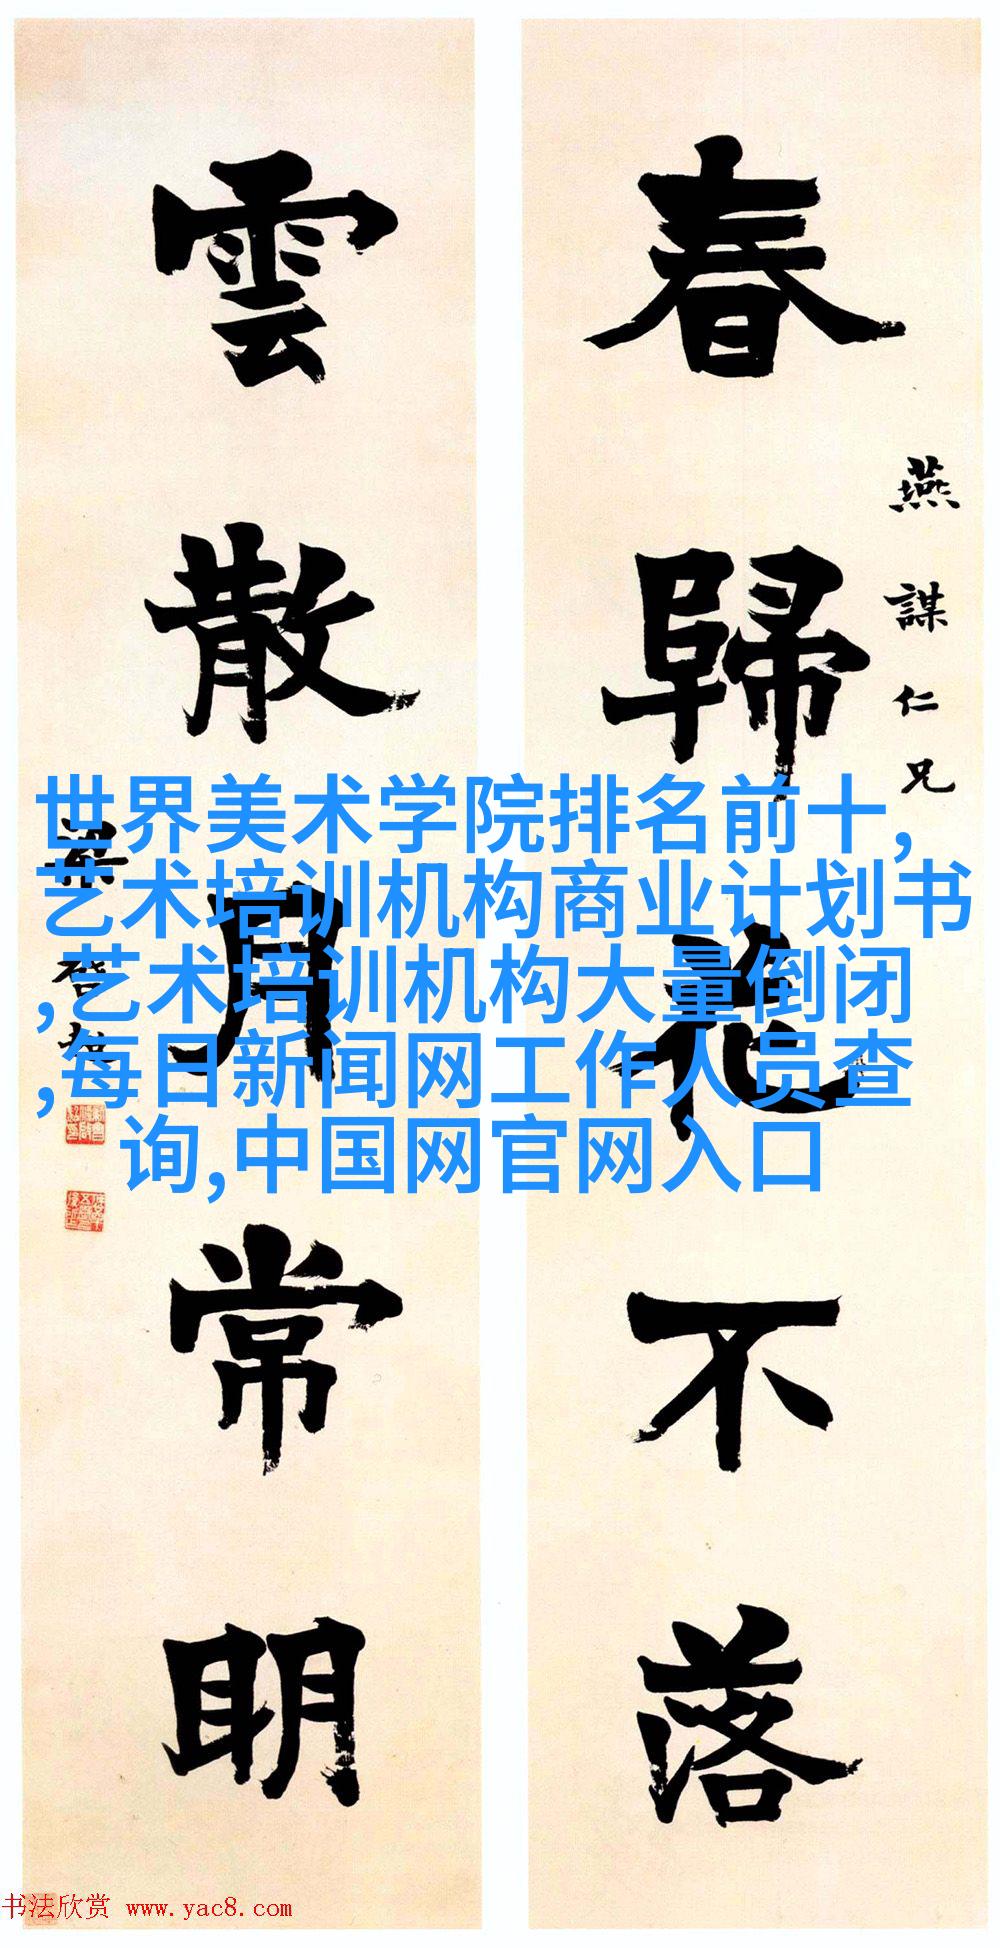 春歸花不落
燕謀仁兄
雲散月常明
梁啓超
世界美术学院排名前十,
艺术培训机构商业计划书
,艺术培训机构大量倒闭
,每日新闻网工作人员查
询,中国网官网入口
书法欣赏 www.yac8.com